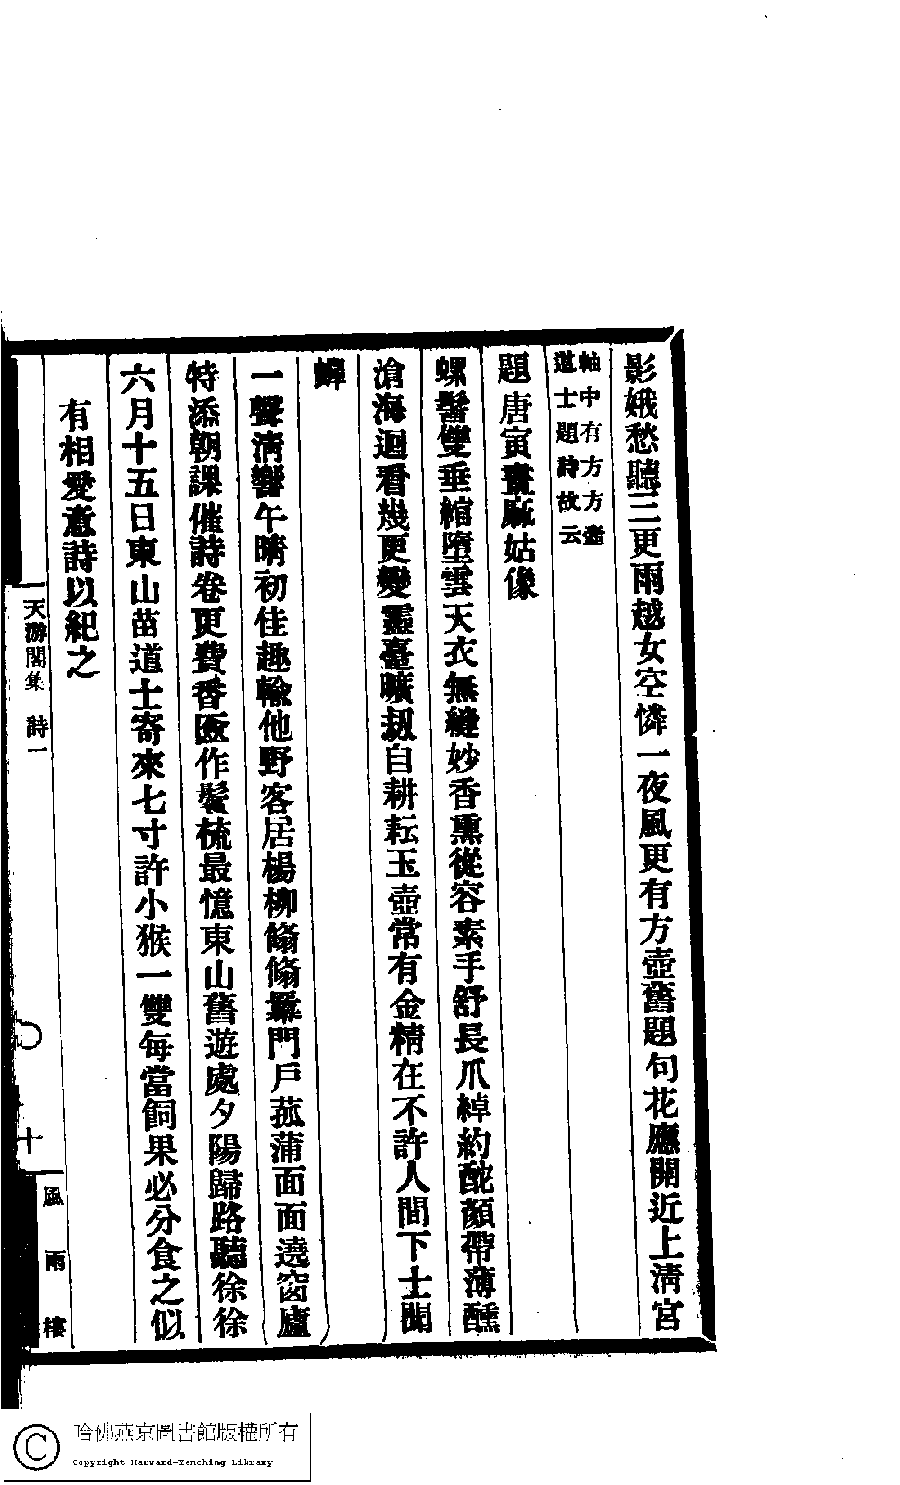 影娥愁聽三更雨越女空憐一夜風更有方壺舊題句花應開近上清宮
軸中有方方壺
道士題詩故云
題唐寅畫麻姑像
螺髻雙垂綰墮雲天衣無縫妙香熏從容素手舒長爪綽約酡顏帶薄醺
滄海迴看幾更變靈臺曠劫自耕耘玉壺常有金精在不許人間下士聞
蟬
一聲清響午晴初佳趣輸他野客居楊柳翛翛羃門戶菰蒲面面遶窗廬
特添朝課催詩卷更費香匳作鬢梳最憶東山舊遊處夕陽歸路聽徐徐
六月十五日東山苗道士寄來七寸許小猴一雙每當飼果必分食之似
有相愛意詩以紀之
天游閣集 詩一
十
風雨樓
哈佛燕京圖書館版權所有
Copyright Harvard-Yenching Library